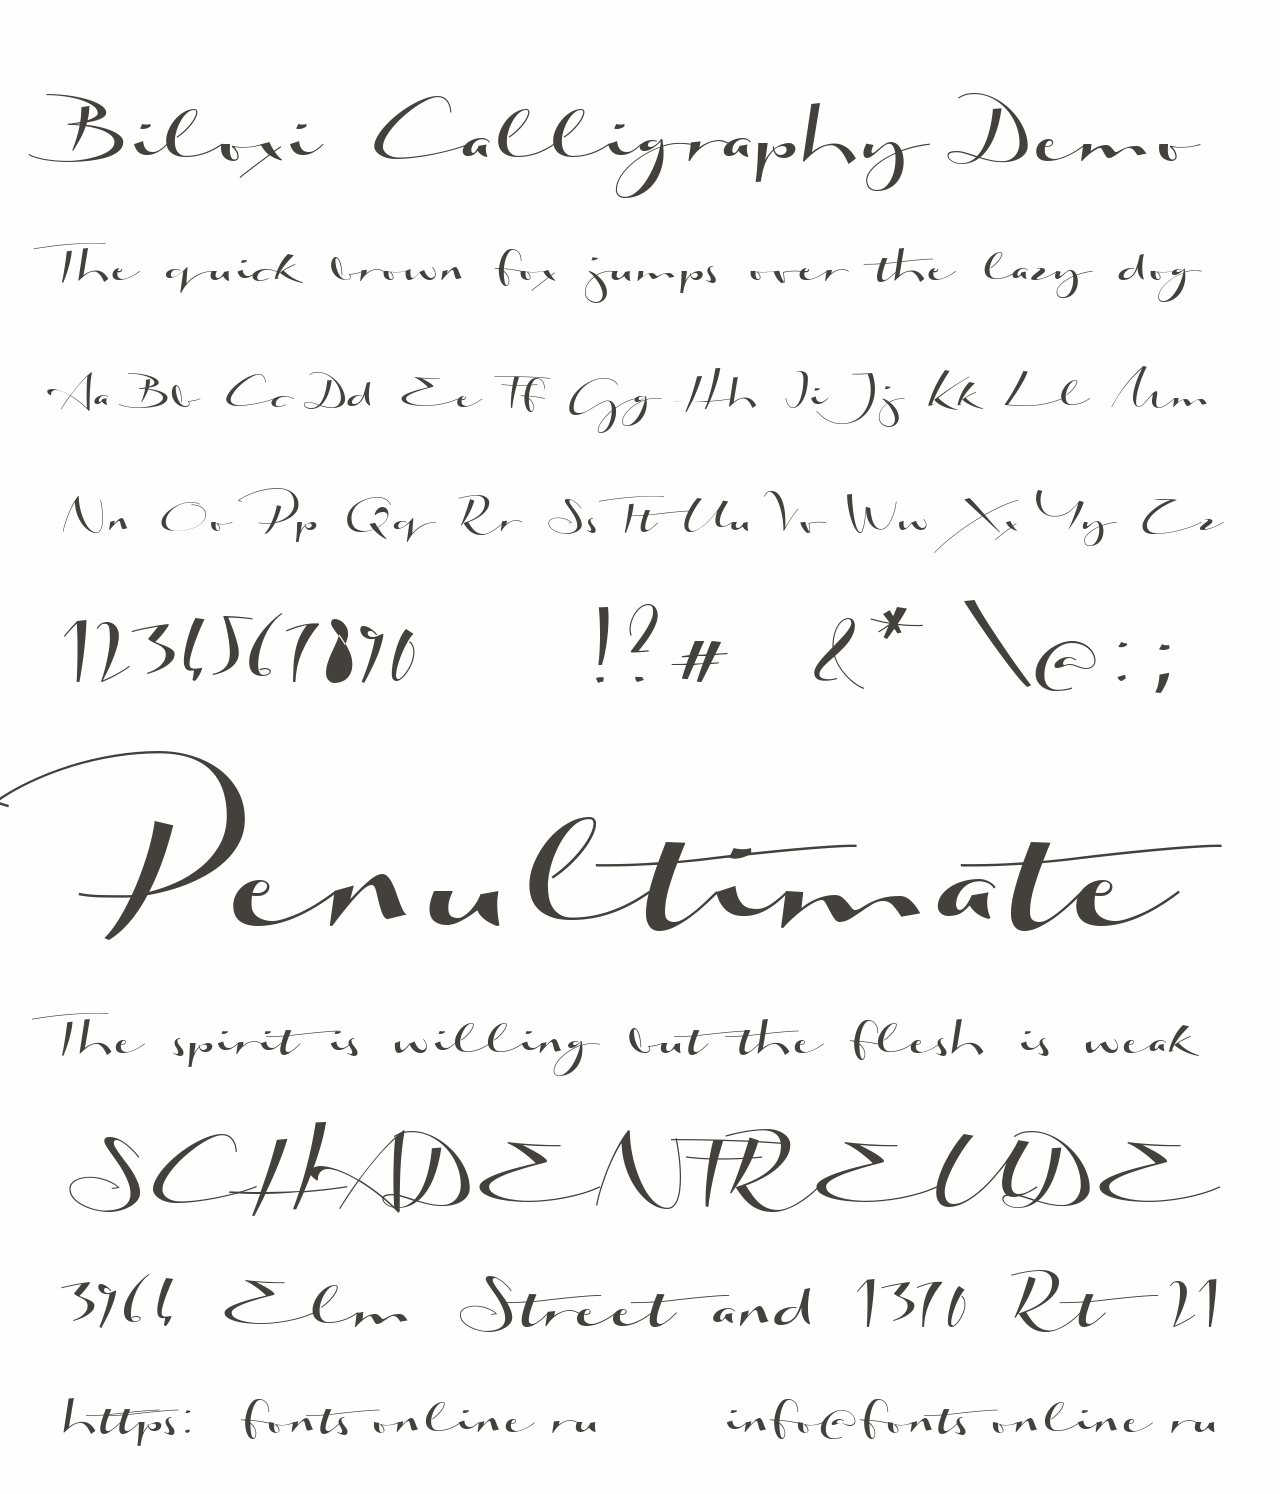 Biloxi Calligraphy Demo
The quick brown fox jumps over the lazy dog
Aa Bb Cc Dd Ee Ff Gg Hh Ii Jj Kk Ll Mm
Nn Oo Pp Qq Rr Ss Tt Uu Vv Ww Xx Yy Zz
1234567890 !?# &* \@:;
Penultimate
The spirit is willing but the flesh is weak
SCHADENFREUDE
3964 Elm Street and 1370 Rt 21
https: fonts online ru info@fonts online ru